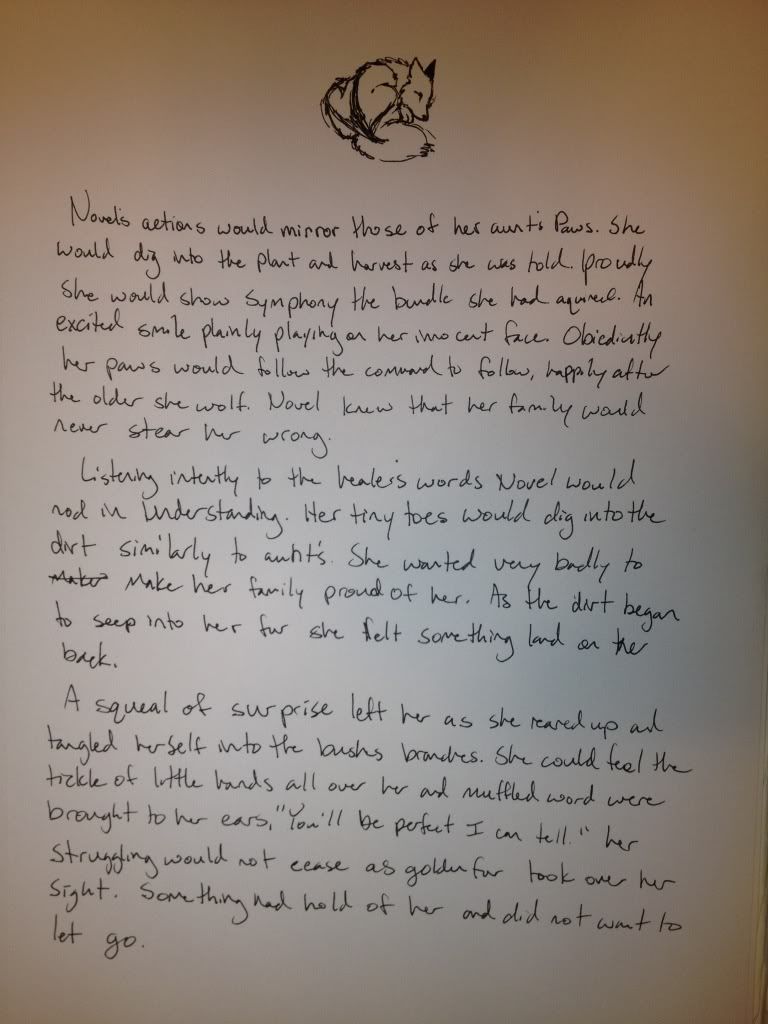 Novel's actions would mirror those of her aunt's Paws. She
would dig into the plant and harvest as she was told. Proudly
she would show Symphony the bundle she had aquired. An
excited smile plainly playing on her innocent face. Obiediently
her paws would follow the command to follow, happily after
the older she wolf. Novel knew that her family would
never stear her wrong.
Listening intently to the healer's words Novel would
nod in understanding. Her tiny toes would dig into the
dirt similarly to aunt's. She wanted very badly to
Make her family proud of her. As the dirt began
to seep into her fur she felt something land on her
back.
A squeal of surprise left her as she reared up and
tangled herself into the bushs branches. She could feel the
tickle of little hands all over her and muffled word were
brought to her ears, "You'll be perfect I can tell." her
struggling would not cease as golden fur took over her
sight. Something had hold of her and did not want to
let go.